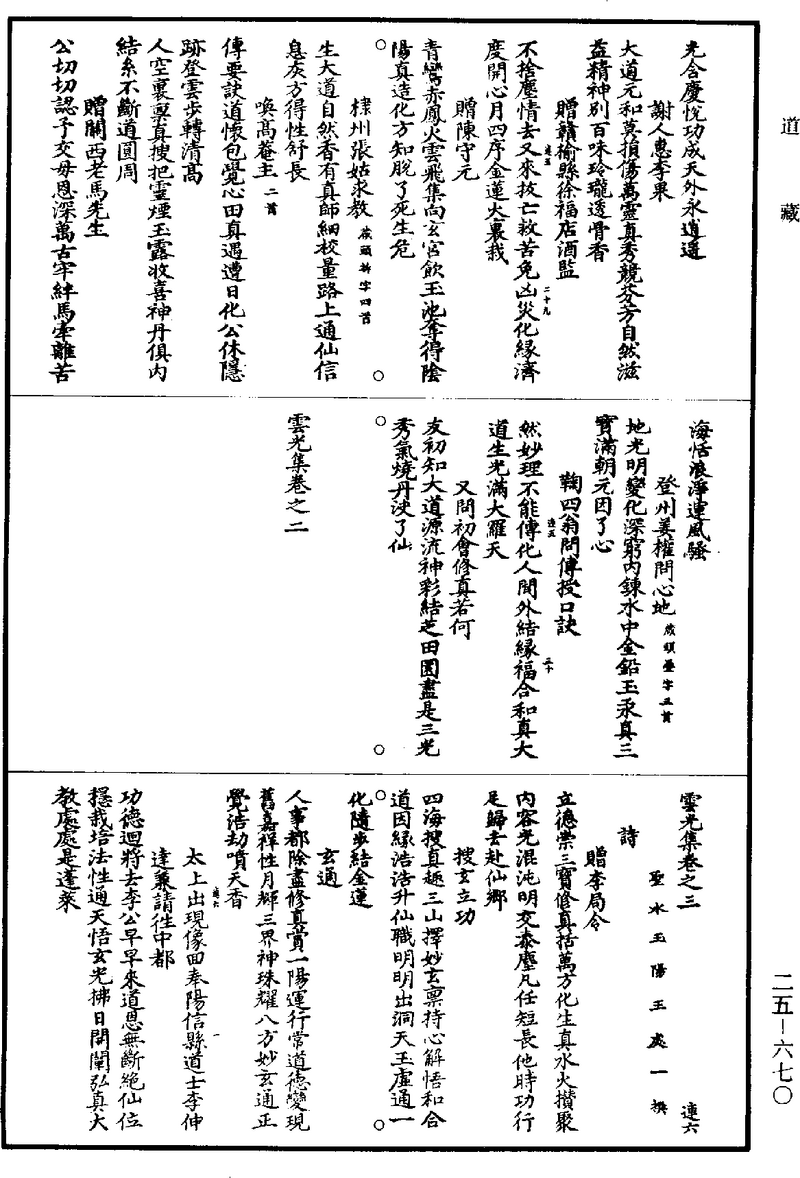 道藏
光含慶悅功成天外永逍遥
謝人惠李果
大道元和莫損傷萬靈真秀競芬芳自然滋
益精神別百味玲瓏透骨香
贈贛榆縣徐福店酒監
不捨塵情去又來拔亡救苦免凶災化緣濟
度開心月四序金蓮火裏栽
贈陳守元
青鸞赤鳳火雲飛集向玄宮飲玉池奪得陰
陽真造化方知脫了死生危
棣州張姑求教 藏頭拆字四首
生大道自然香有真師細校量路上通仙信
息灰方得性舒長
喚髙菴主 二首
傳要訣道懷包覺心田真遇遭日化公休隱
跡登雲步轉清髙
人空裏稟真搜把靈煙玉露收喜神丹俱內
結糸不斷道圓周
贈關西老馬先生
公切切認予交毋恩深萬古牢絆馬牽離苦
海恬浪淨運風騷
登州姜權問心地 藏頭疊字五首
地光明變化深窮內鍊水中金鉛玉汞真三
寶滿朝元因了心
鞠四翁問傳授口訣
然妙理不能傳化人間外結緣福合和真大
道生光滿大羅天
又問初會修真若何
友初知大道源流神彩結芝田園盡是三光
秀氣燒丹決了仙
雲光集卷之二
雲光集卷之三
連六
聖水玉陽王處一撰
詩
贈李局令
立德崇三寶修真括萬方化生真水火攢聚
內容光混沌明交泰塵凡任短長他時功行
足歸去赴仙鄉
搜玄立功
四海搜真趣三山擇妙玄稟持心解悟和合
道因緣浩浩升仙職明明出洞天玉虛通一
化隨步結金蓮
玄通
人事都除盡修真賞一陽運行常道德變現
舊嘉祥性月輝三界神珠耀八方妙玄通正
覺浩劫噴天香
太上出現像回奉陽信縣道士李伸
達兼請往中都
功德迴將去李公早早來道恩無斷絕仙位
穩栽培法性通天悟玄光拂日開闡弘真大
教處處是蓬萊
二五－六七〇